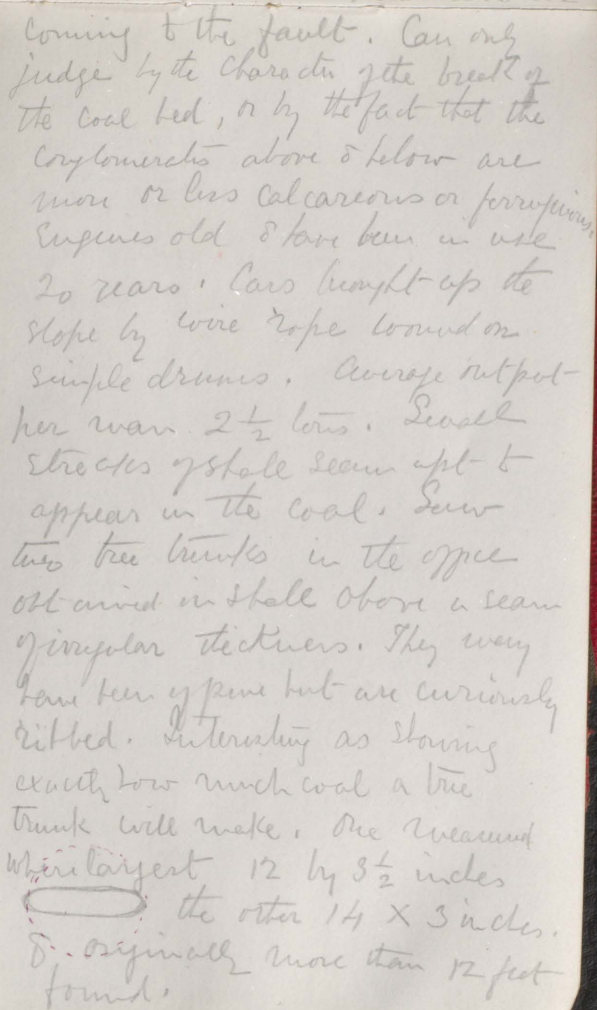 coming to the fault. Can only
judge by the character of the break of
the coal bed, or by the fact that the
conglomerates above & below are
more or less calcareous or ferruginous.
Engines old & have been in use
20 years. Cars brought up the
slope by wire rope wound on
simple drums. Average output
per man 2 1/2 tons. Small
streaks of shale seam apt to
appear in the coal. Saw
two tree trunks in the office
obtained in shale above a seam
of irregular thickness. They may
have been of pine but are curiously
ribbed. Interesting as showing
exactly how much coal a tree
trunk will make. One measured
where largest 12 by 3 1/2 inches
the other 14 X 3 inches.
& originally more than 12 feet
found.